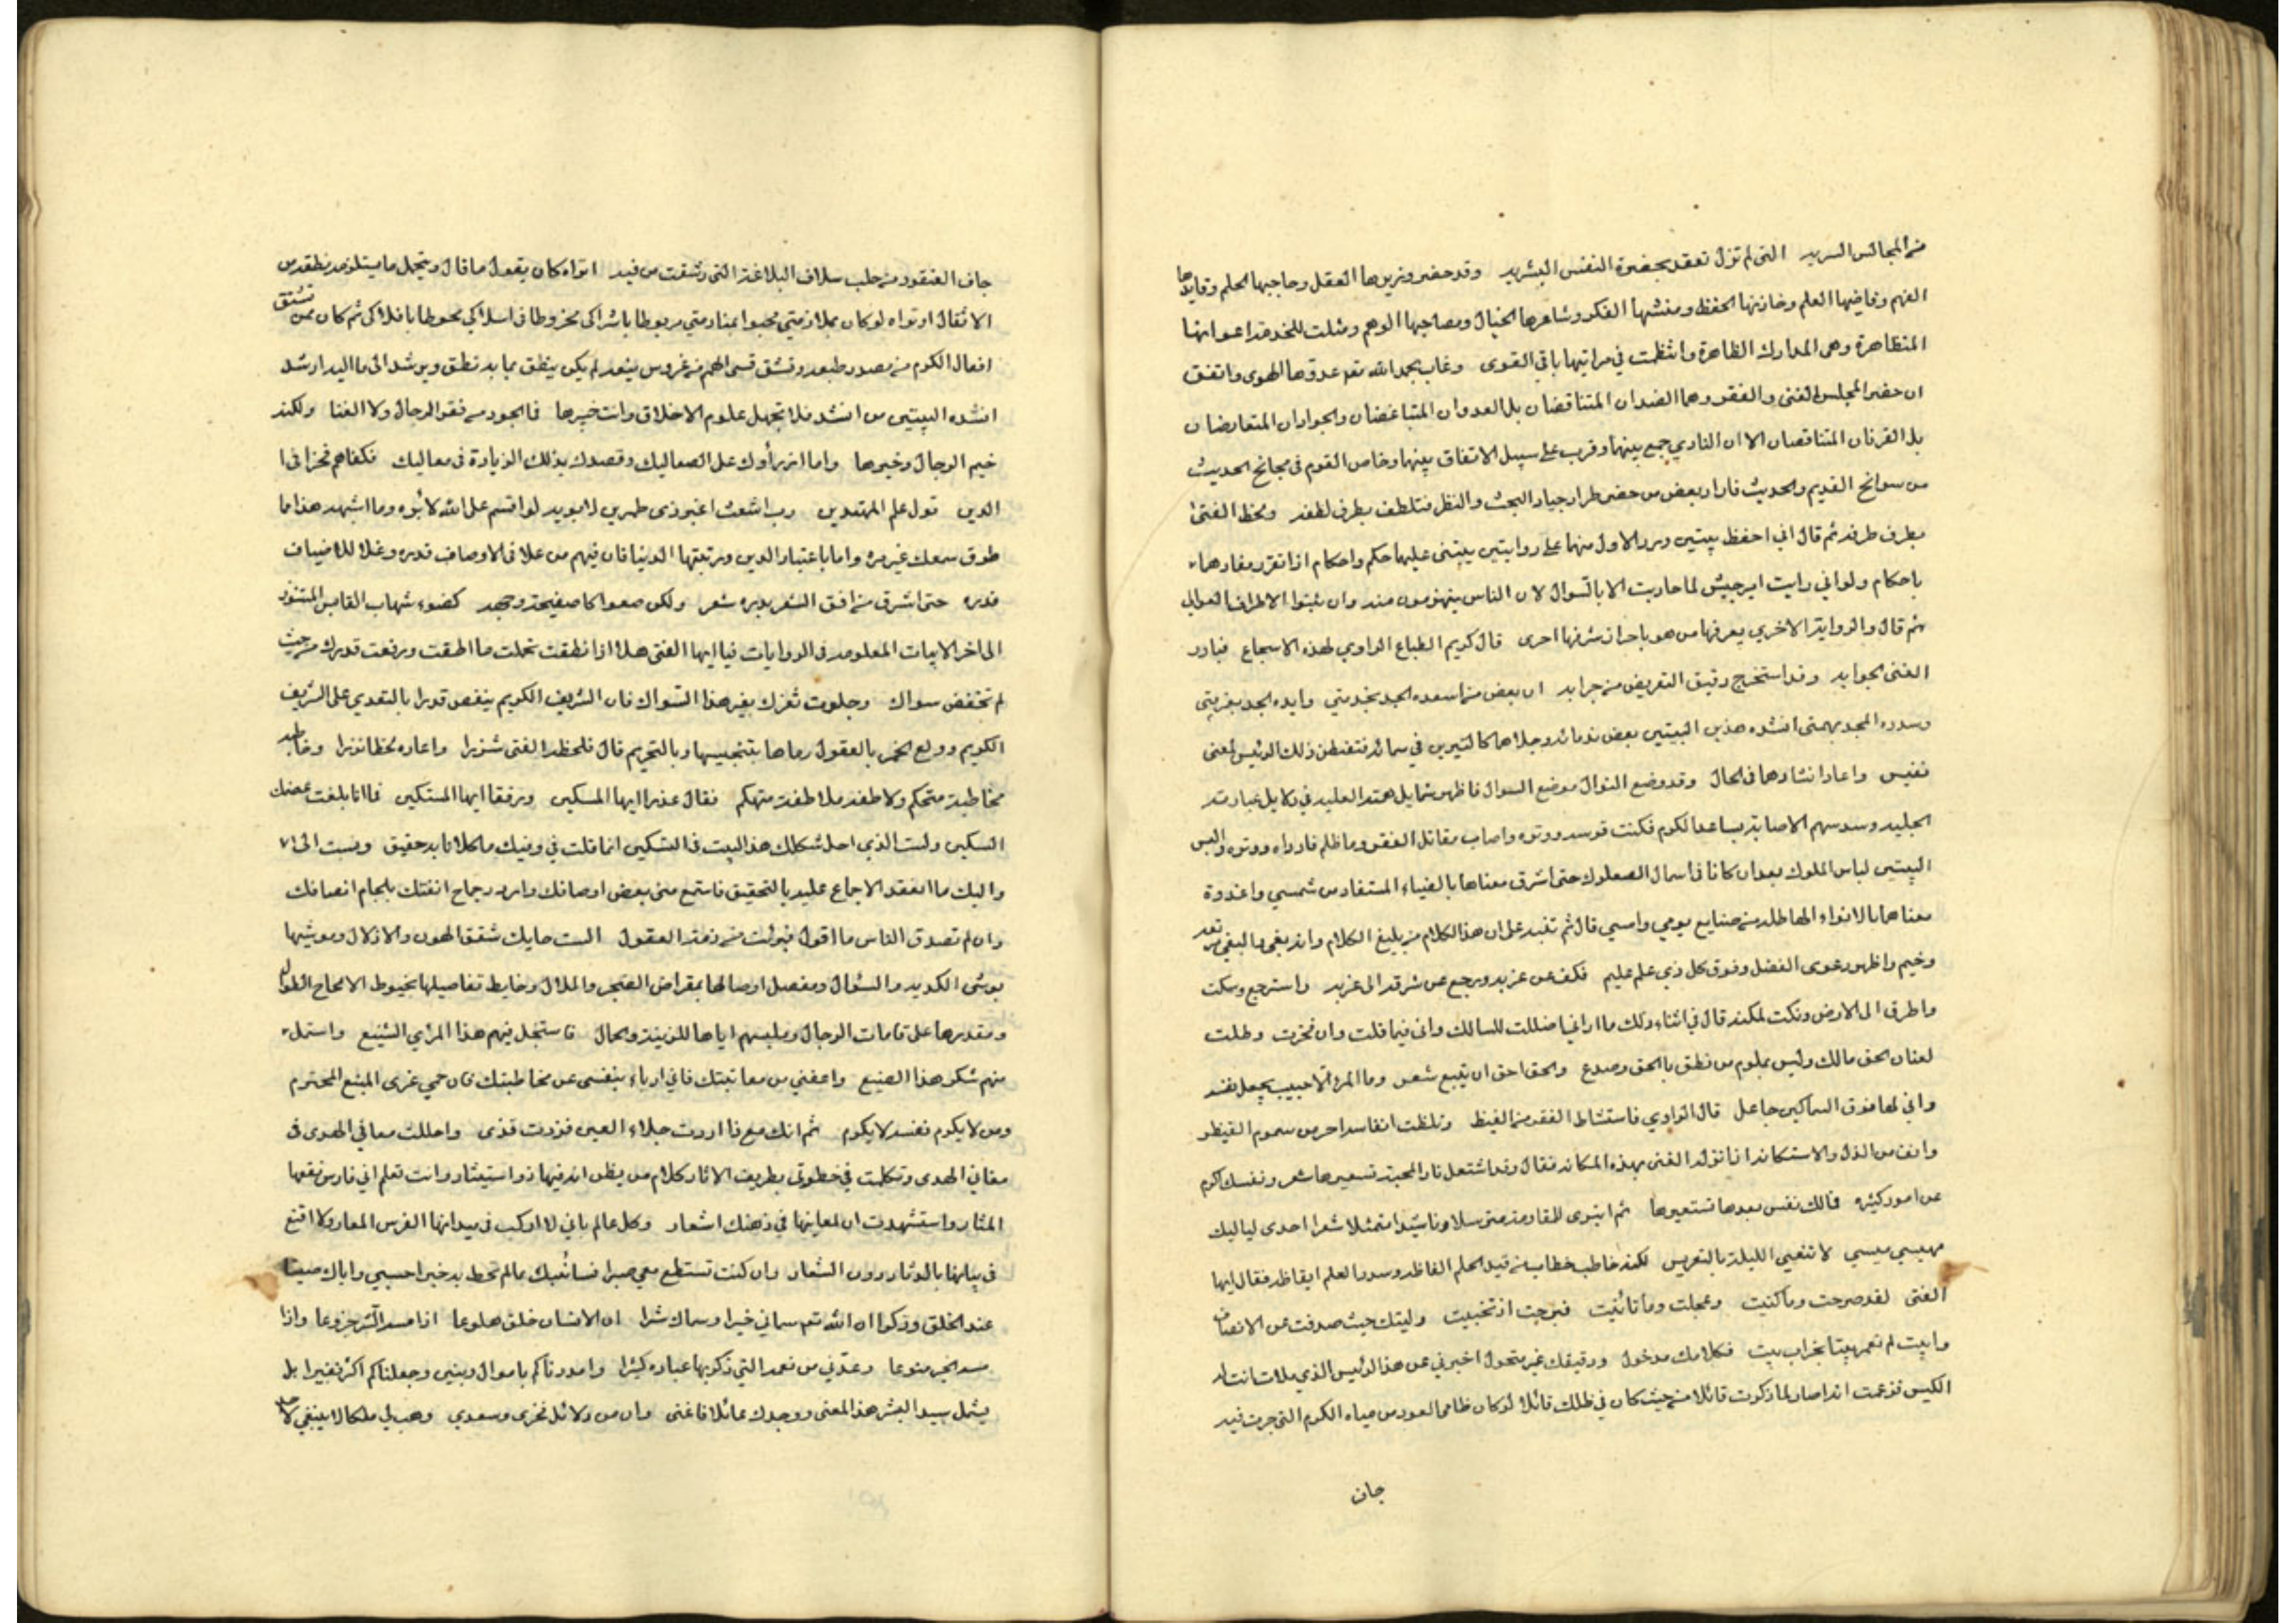 من المجالس السريه التي لم تزل تعقد بحضرة النفس البشريه وقد حضر وزيرها العقل وحاجبها الحلم وقايدها
الفهم وقاضيها العلم وخازنها الحفظ ومنشيها الفكر وشاعرها الخيال ومصاحبها الوهم ومثلت للخدمة اعوانها
المتظاهرة وهي المدارك الظاهرة وانتظمت في مراتبها باقي القوى وغاب بحمد الله تعه عدوها الهوى واتفق
ان حضر المجلس الغنى والفقر وهما الضدان المتناقضان بل العدوان المتباغضان والجوادان المتعارضان
بل القرنان المتناقصان الا ان النادي جمع بينهما وقرب على سبيل الاتفاق بينهما وخاض القوم في مجانح الحديث
من سوانح القديم والحديث فاراد بعض من حضر طراد جياد البحث والنظر فتلطف بطرف لطفه ولحظ الفتى
بطرف طرفه ثم قال اني احفظ بيتين ورد الاول منهما على روايتين يبتنى عليهما حكم واحكام اذا تقرر مفادهما
باحكام ولو اني رايت ابن جيش لما حاربت الا بالسوال لان الناس ينهزمون منه وان ثبتوا الاطراف العوالي
ثم قال والرواية الاخري يعرفها من هو باحراز شرفها احرى قال كريم الطباع الراوي لهذه الاسجاع فبادر
الغنى بجوابه وقد استخرج دقيق التعريض من جرابه ان بعض من اسعده الجد بخدمتي وايده الجد بقربتي
وسدده المجد بهمتي انشده هذين البيتين بعض ندمائه وجلاهما كالنيرين في سمائه فتفطن ذلك الرئيس لمعنى
نفيس واعاد انشادهما في الحال وقد وضع النوال موضع السوال فاظهر شمايل همته العليه في دلايل عبارته
الجليه وسدد سهم الاصابة بساعد الكرم فكنت قوسه ووتره واصاب مقاتل الفقر وما ظلم فارداه ووتره والبس
البيتين لباس الملوك بعد ان كانا في اسمال الصعلوك حتى اشرق معناهما بالضياء المستفاد من شمسي واغدوة
معناهما بالانواء الهاطلة من صنايع يومي وامسي قال ثم تنبه على ان هذا الكلام من بليغ الكلام وانه بغى والبغي مرتعه
وخيم واظهر دعوى الفضل وفوق كل ذي علم عليم فكف عن غربه ورجع عن شرقه الى غربه واسترجع وسكت
واطرق الى الارض ونكت لكنه قال في اثناء ذلك ما اراني اضللت المسالك واني فيما قلت وان فخرت وطلت
لعنان الحق مالك وليس بملوم من نطق بالحق وصدع والحق احق ان يتبع شعر وما المرء الا حيث يجعل نفسه
واني لها فوق السماكين جاعل قال الراوي فاستشاط الفقر من الغيظ وتلظت انفاسه احر من سموم القيظ
وانف من الذل والاستكانه اذ انزله الغنى بهذه المكانه فقال وقد اشتعل نار المحبة تسعيرها شعر ونفسك اكرم
عن امور كثيره فمالك نفس بعدها تستعيرها ثم انبرى للمقاومة منى سلاونا شيدا متمثلا شعرا احدى لياليك
فهيسي هيسي لا تنعمي الليلة بالتعريس لكنه خاطب خطاب من قيد الحلم الفاظه وسدد العلم ايقاظه فقال ايها
الغنى لقد صرحت وما كنيت وعجلت وما تانيت فبرحت اذ تجنيت وليتك حيث صدفت عن الانصاف
وابيت لم تعمر بيتا بخراب بيت فكلامك مدخول ودقيقك غير منخول اخبرني عن هذا الرئيس الذي ملات انت له
الكيس فزعمت انه صار لما ذكرت قائلا من حيث كان في ظلك قائلا لو كان ظامي العود من مياه الكرم التي جرت فيه
جاف
جاف العنقود من حلب سلاف البلاغة التي رشفت من فيه اتراه كان يقول ما قال ويتجمل ما يستلزمه نطقه من
الاثقال او تراه لو كان بملازمتي محبوا بمنادمتي مربوطا باشراكي مخروطا في اسلاكي محوطا بافلاكي ثم كان ممن تشتق
افعال الكرم من مصدر طبعه وتنشق قسي الهمم من غروس نبعه لم يكن ينطق بما به نطق ويرشد الى ما اليه ارشد
انشده البيتين من انشد فلا تجهل علوم الاخلاق وانت خبيرها فما الجود من فقر الرجال ولا الغنا ولكنه
خيم الرجال وخيرها واما ازدراؤك على الصعاليك وقصدك بذلك الزيادة في معاليك فكفاهم فخرا في
الدين قول علم المهتدين رب اشعث اغبر ذي طمرين لا يوبه له لو اقسم على الله لابره وما اشبهه هذا ما
طرق سمعك غير مره واما باعتبار الدين ومرتبتها الدنيا فان فيهم من علا في الاوصاف قدره وغلا للاضياف
قدره حتى اشرق من افق الشعر بدره شعر ولكن صعلوكا صفيحة وجهه كضوء شهاب القابس المتنور
الى اخر الابيات المعلومه في الروايات فيا ايها الغنى هلا اذ انطقت تحملت ما اطقت ورفعت قدرك من حيث
لم تخفض سواك وجلوت ثغرك بغير هذا السواك فان الشريف الكريم ينقص قدرا بالتعدي على الشريف
الكريم وولع الخمر بالعقول رماها بتنجيسها وبالتحريم قال فلحظه الغنى شزرا واعاره لحظا نزرا وخاطبه
مخاطبة متحكم ولاطفه ملاطفة متهكم فقال عذرا ايها المسكين ورفقا ايها المستكين فما انا بلغت عضك
السكين ولست الذي احل شكلك هذا البيت في التسكين انما قلت في وفيك ما كلانا به حقيق ونسبت الى
واليك ما انعقد الاجماع عليه بالتحقيق فاستمع مني بعض اوصافك واردد جماح انفتك بلجام انصافك
وان لم تصدق الناس ما اقول فبرئت من ذمة العقول الست حايك شقق الهون والاذلال وموشيها
بوشي الكديه والسؤال ومفصل اوصالها بمقراض الضجر والملال وخايط تفاصيلها بخيوط الالحاح الطوال
ومقدرها على قامات الرجال وملبسهم اياها للزينة والجمال فاستجل منهم هذا المرأي الشنيع واستمل
منهم شكر هذا الصنيع واعفني من معاتبتك فاني ارباء بنفسي عن مخاطبتك فان حمي عزى المنيع المحترم
ومن لا يكرم نفسه لا يكرم ثم انك مع ذا اردت جلاء العين فزدت قذى واحللت معاني الهوى في
مغاني الهدى وتكلمت في خطوتي بطريف الاثار كلام من يظن انه فيها ذو استيثار وانت تعلم اني فارس نقعها
المثار واستشهدت ان لمعاينها في ذهنك اشعار وكل عالم باني لا اركب في ميدانها الفرس المعار ولا اقنع
في بيانها بالدثار دون الشعار وان كنت تستطع معي صبرا فسانبئك بما لم تحط به خبرا احسبي واياك صيتا
عند الخلق وذكرا ان الله تعه سماني خيرا وسماك شرا ان الانسان خلق هلوعا اذا مسه الشر جزوعا واذا
مسه الخير منوعا وعدني من نعمه التي ذكر بها عباده كثيرا وامددناكم باموال وبنين وجعلناكم اكثر نفيرا بل
يشمل سيد البشر هذا المعنى ووجدك عائلا فاغنى وان من دلائل فخري وسعدي وهب لي ملكا لا ينبغي لاحد